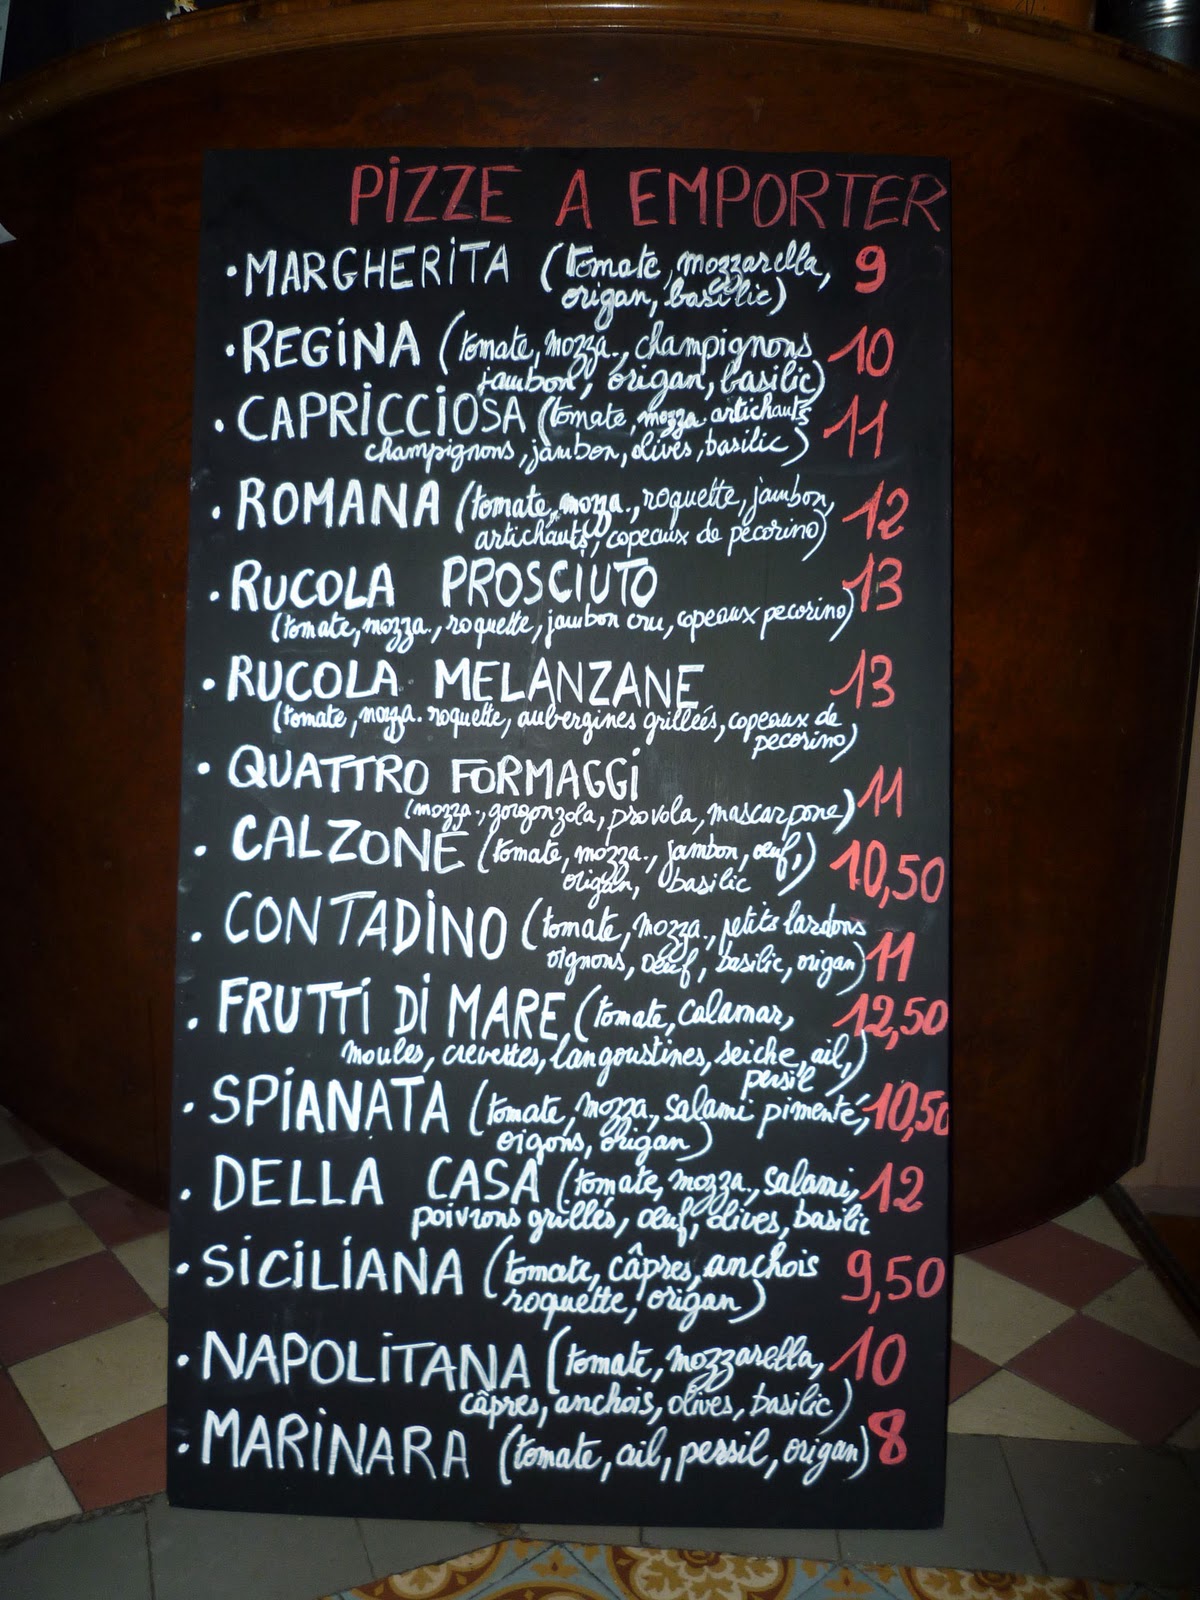 PIZZE A EMPORTER
• MARGHERITA (tomate, mozzarella, 9
origan, basilic)
• REGINA (tomate, mozza., champignons 10
jambon, origan, basilic)
• CAPRICCIOSA (tomate, mozza. artichauts 11
champignons, jambon, olives, basilic)
• ROMANA (tomate, mozza., roquette, jambon, 12
artichauts, copeaux de pecorino)
• RUCOLA PROSCIUTO 13
(tomate, mozza., roquette, jambon cru, copeaux pecorino)
• RUCOLA MELANZANE 13
(tomate, mozza. roquette, aubergines grilleés, copeaux de
pecorino)
• QUATTRO FORMAGGI 11
(mozza., gorgonzola, provola, mascarpone)
• CALZONE (tomate, mozza., jambon, œuf,) 10,50
origan, basilic
• CONTADINO (tomate, mozza., petits lardons 11
oignons, œuf, basilic, origan)
• FRUTTI DI MARE, (tomate, calamar, 12,50
moules, crevettes, langoustines, seiche, ail,
persil)
• SPIANATA (tomate, mozza, salami pimenté, 10,50
oigons, origan)
• DELLA CASA (tomate, mozza., salami, 12
poivrons grillés, œuf, olives, basilic
• SICILIANA (tomate, câpres, anchois 9,50
roquette, origan)
• NAPOLITANA (tomate, mozzarella, 10
câpres, anchois, olives, basilic)
• MARINARA (tomate, ail, persil, origan) 8